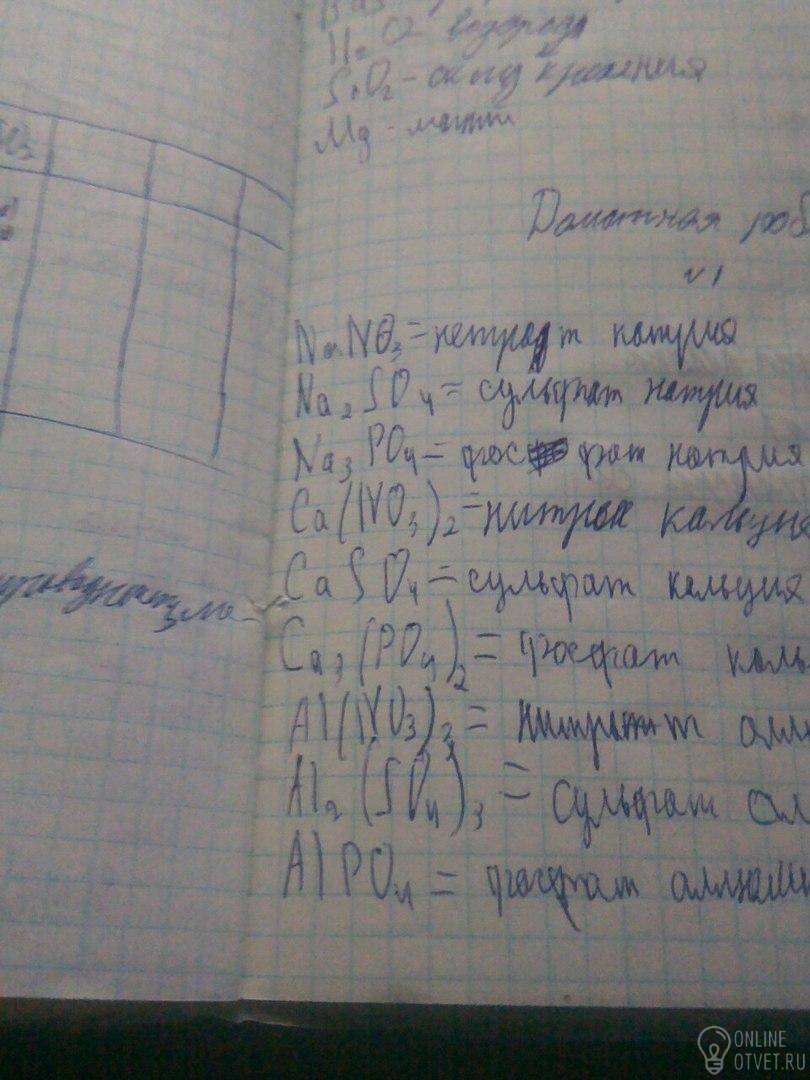 H₂O - водород
SiO₂ - оксид кремния
Mg - магний
Домашняя роб
№1
NaNO₃ = нетрадт натрия
Na₂SO₄ = сульфат натрия
Na₃PO₄ = фосфат натрия
Ca(NO₃)₂ = нитрок кальция
CaSO₄ = сульфат кальция
Ca₃(PO₄)₂ = фосфат каль
Al(NO₃)₃ = нитрат алл
Al₂(SO₄)₃ = сульфат ал
AlPO₄ = фосфат аллюми
ONLINE
OTVET.RU